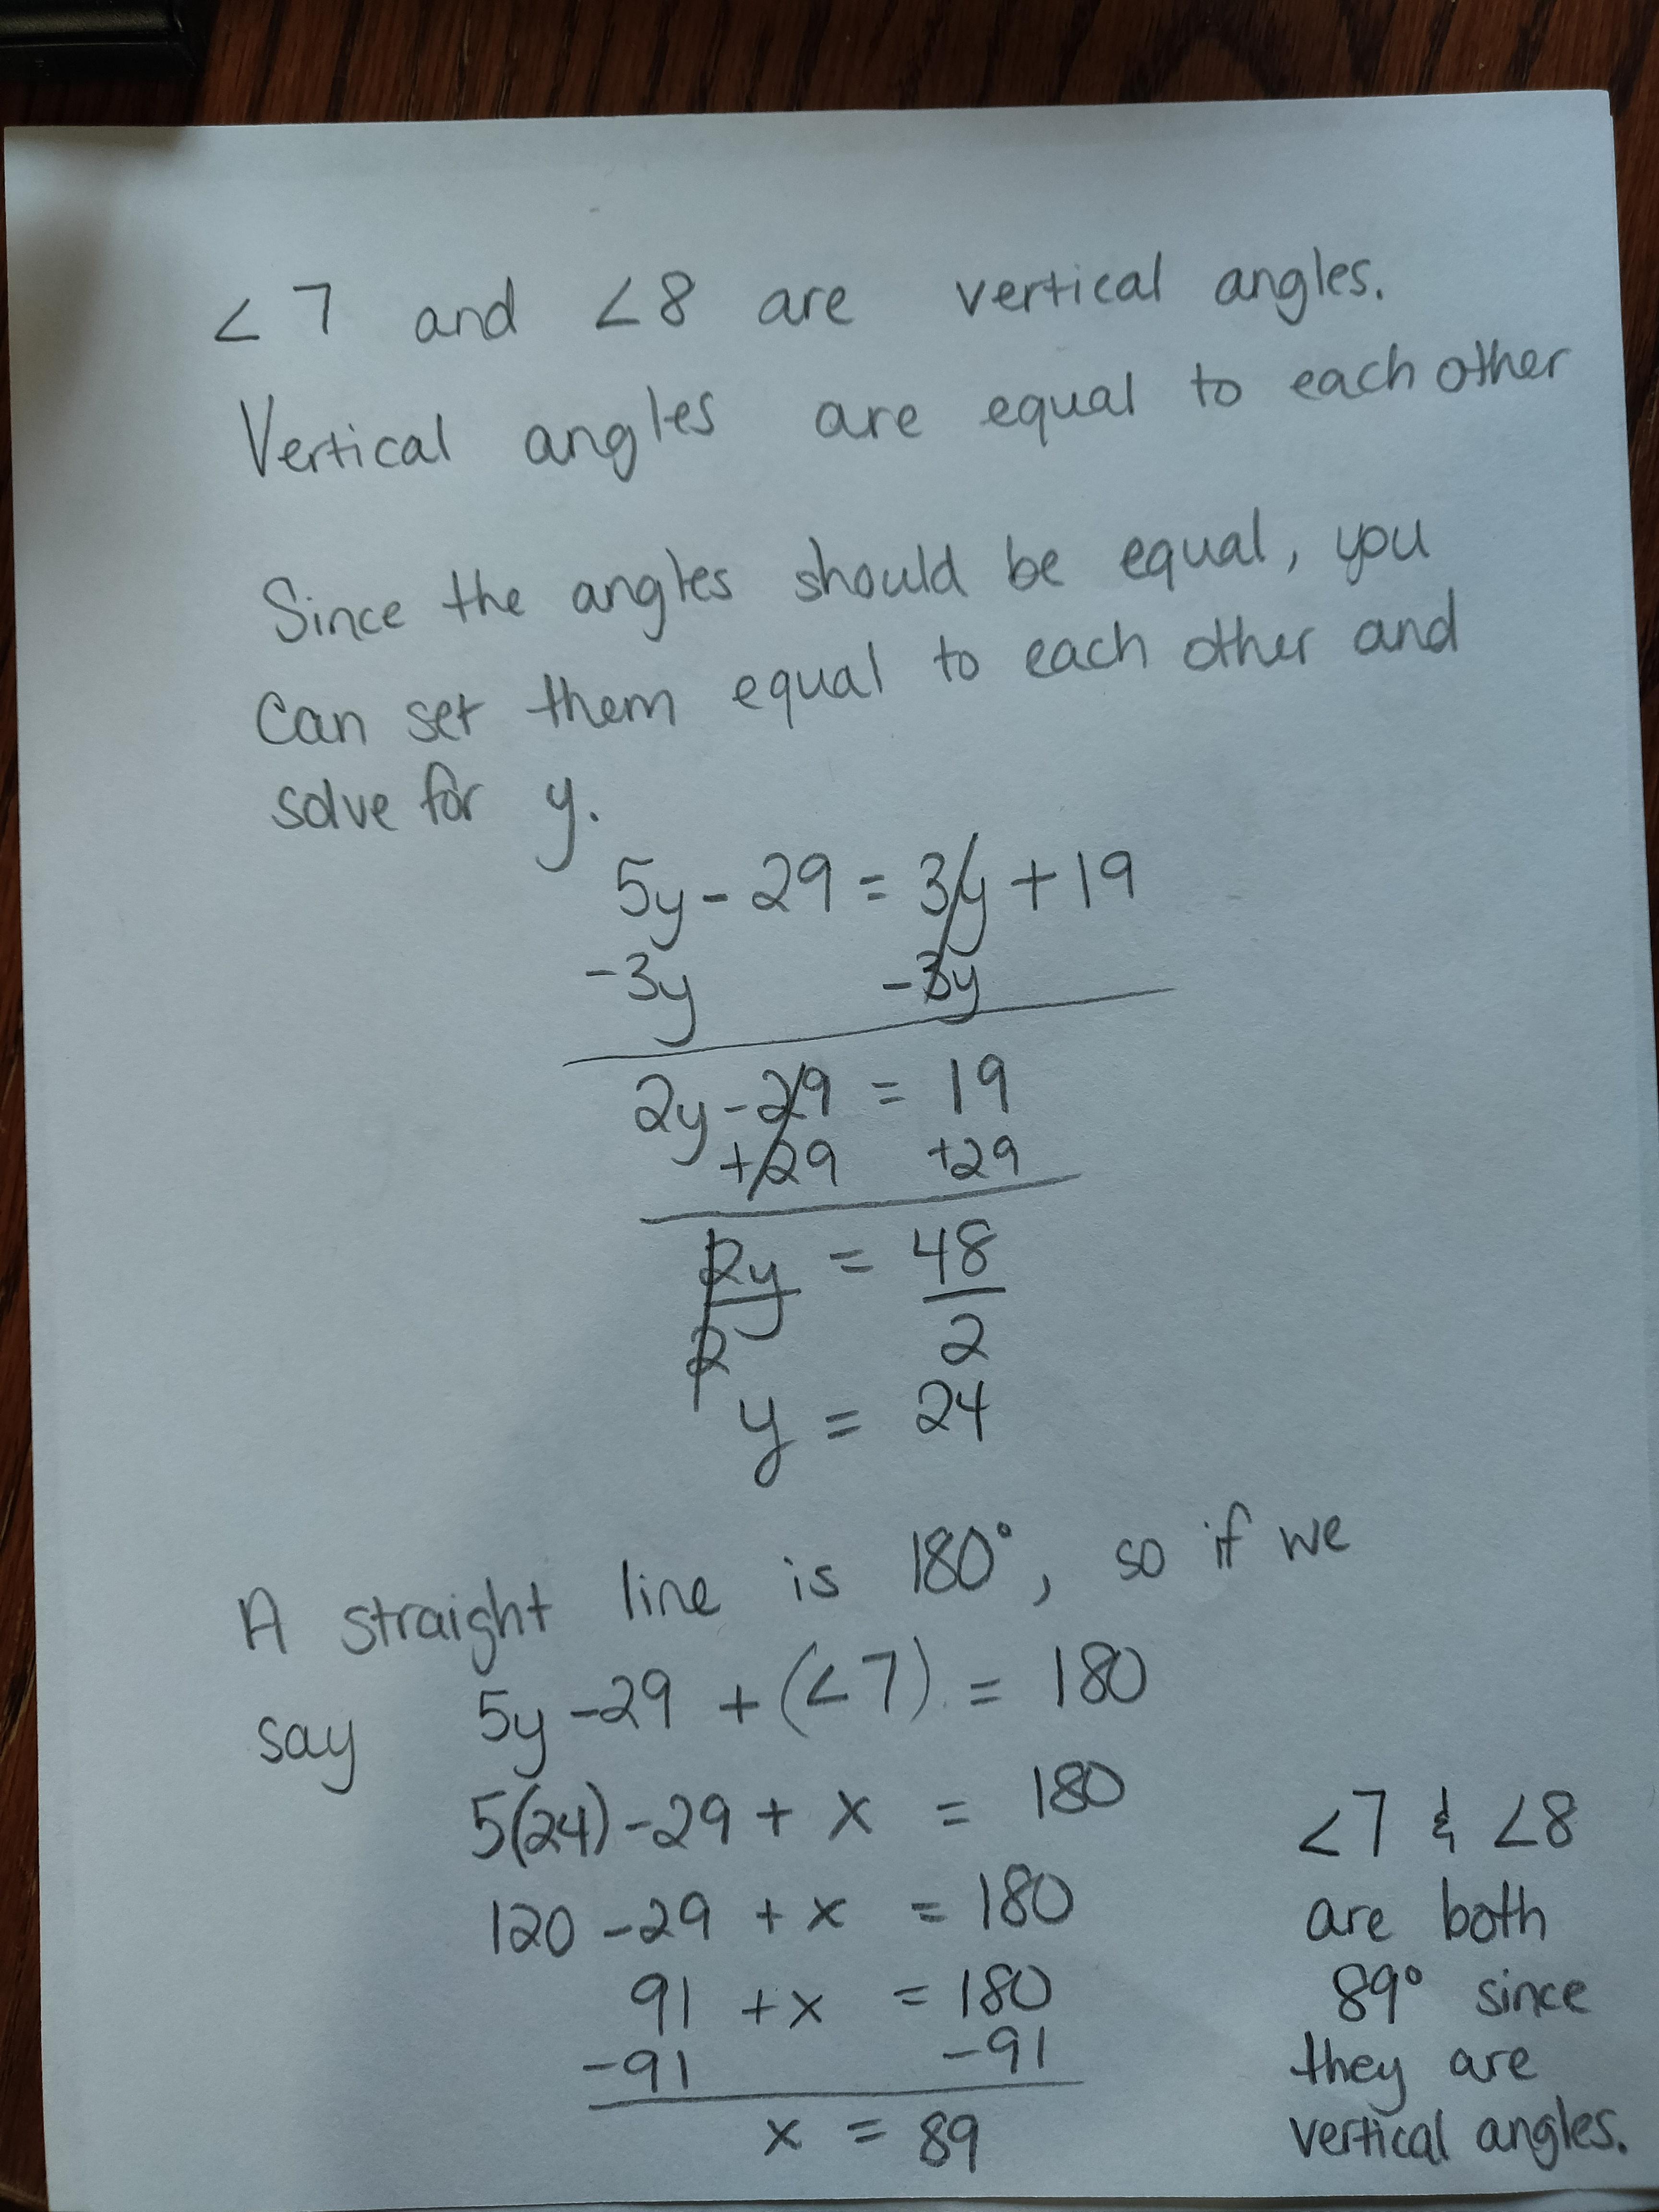 ∠7 and ∠8 are vertical angles.
Vertical angles are equal to each other
Since the angles should be equal, you
can set them equal to each other and
solve for y.
5y - 29 = 3y + 19
-3y -3y
2y - 29 = 19
+29 +29
2y = 48
2 2
y = 24
A straight line is 180°, so if we
say 5y - 29 + (∠7) = 180
5(24) - 29 + x = 180
120 - 29 + x = 180
91 + x = 180
-91 -91
x = 89
∠7 & ∠8
are both
89° since
they are
vertical angles.